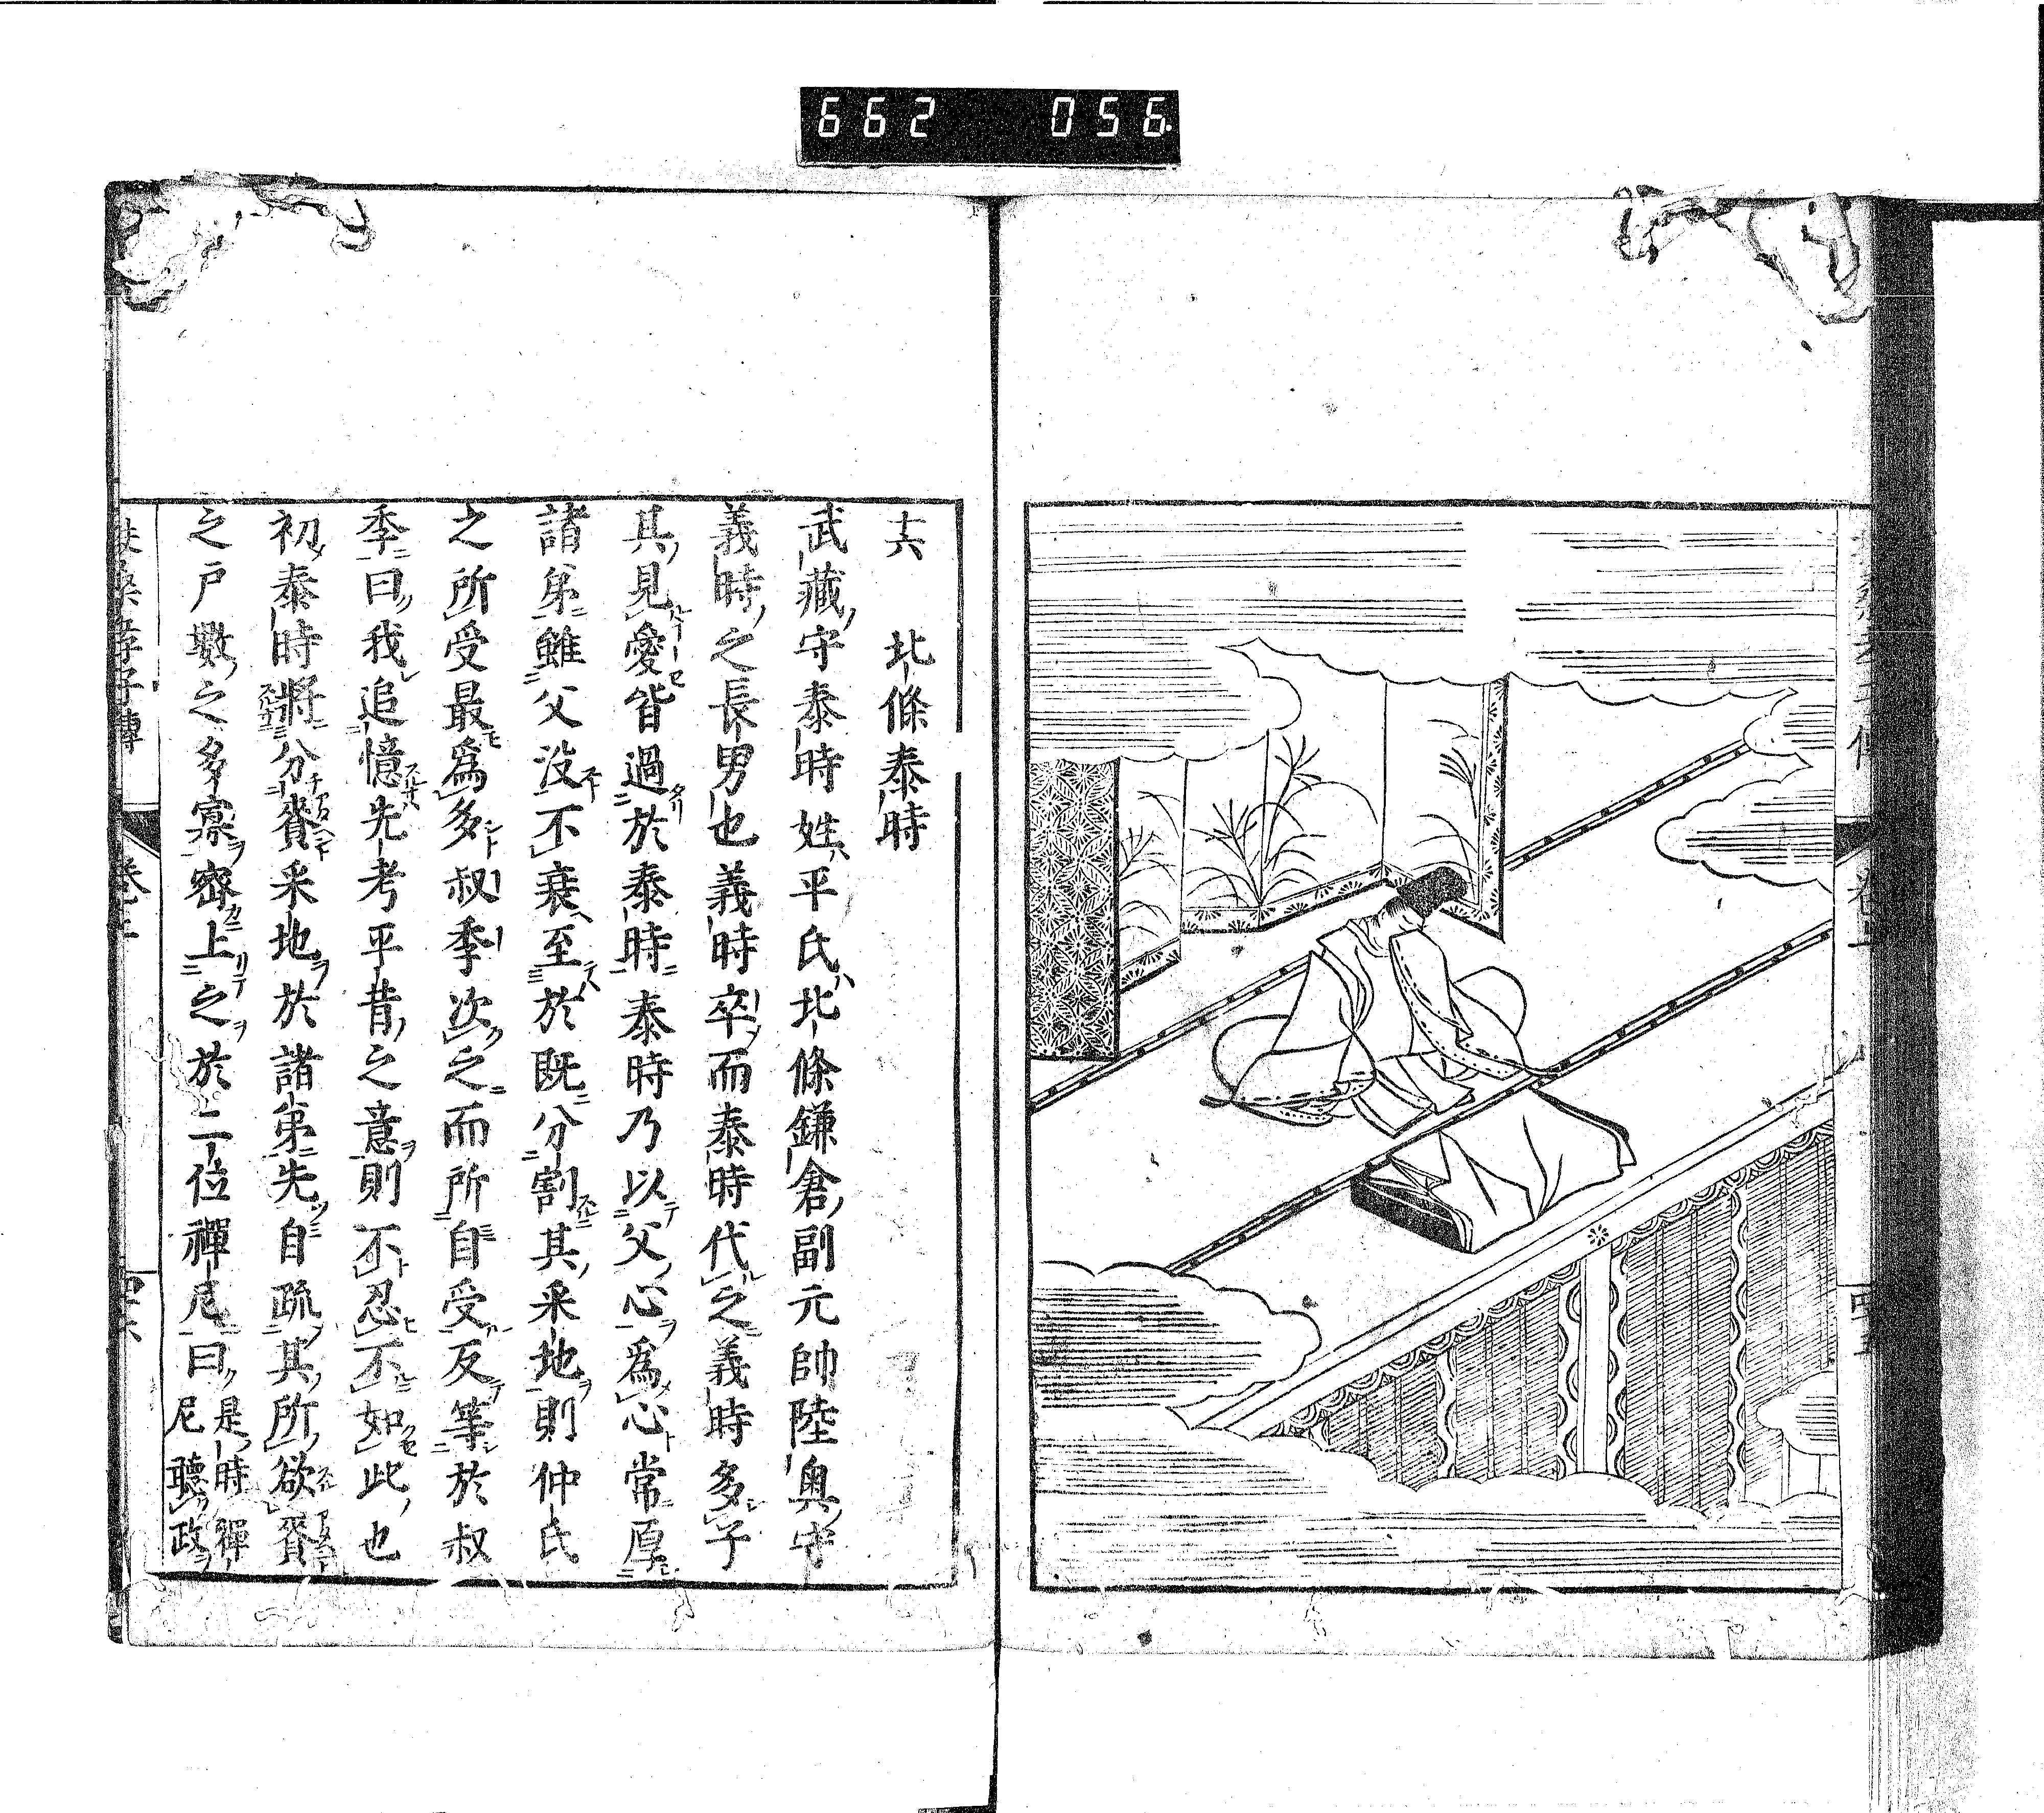 662 056
十六 北條泰時
武藏守泰時姓平氏北條鎌倉副元帥陸奥守
義時之長男也義時卒而泰時代之義時多子
其見愛皆過於泰時泰時乃以父心爲心常厚
諸弟雖父沒不衰至於既分割其采地則仲氏
之所受最爲多叔季次之而所自受反等於叔
季曰我追憶先考平昔之意則不忍不如此也
初泰時將分賚采地於諸弟先自疏其所欲賚
之戸數之多寡密上之於二位禪尼曰是時禪
尼聽政
扶桑孝子傳 卷上 四十六